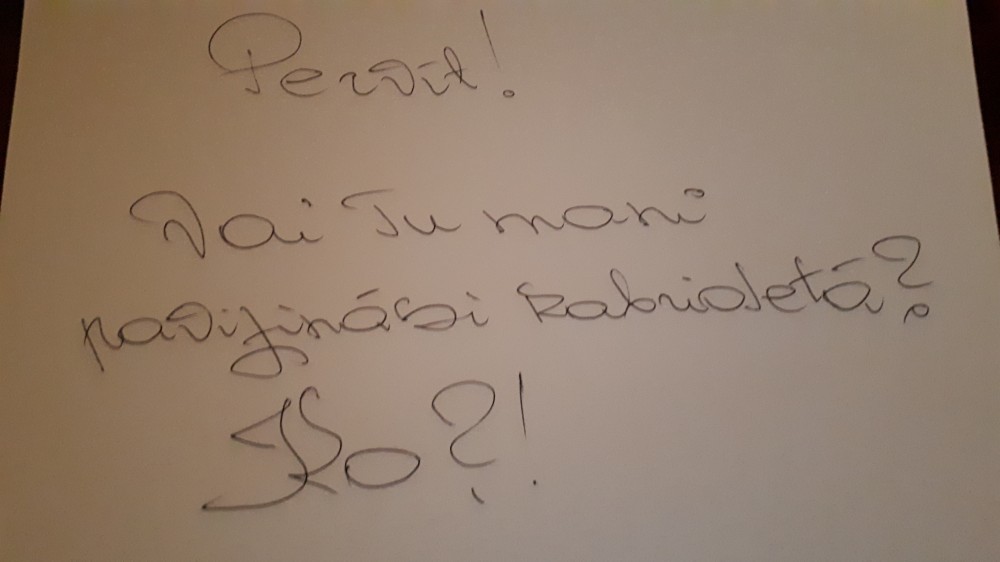 Pervīt!
Vai Tu mani
pavizināsi kabrioletā?
Ko?!